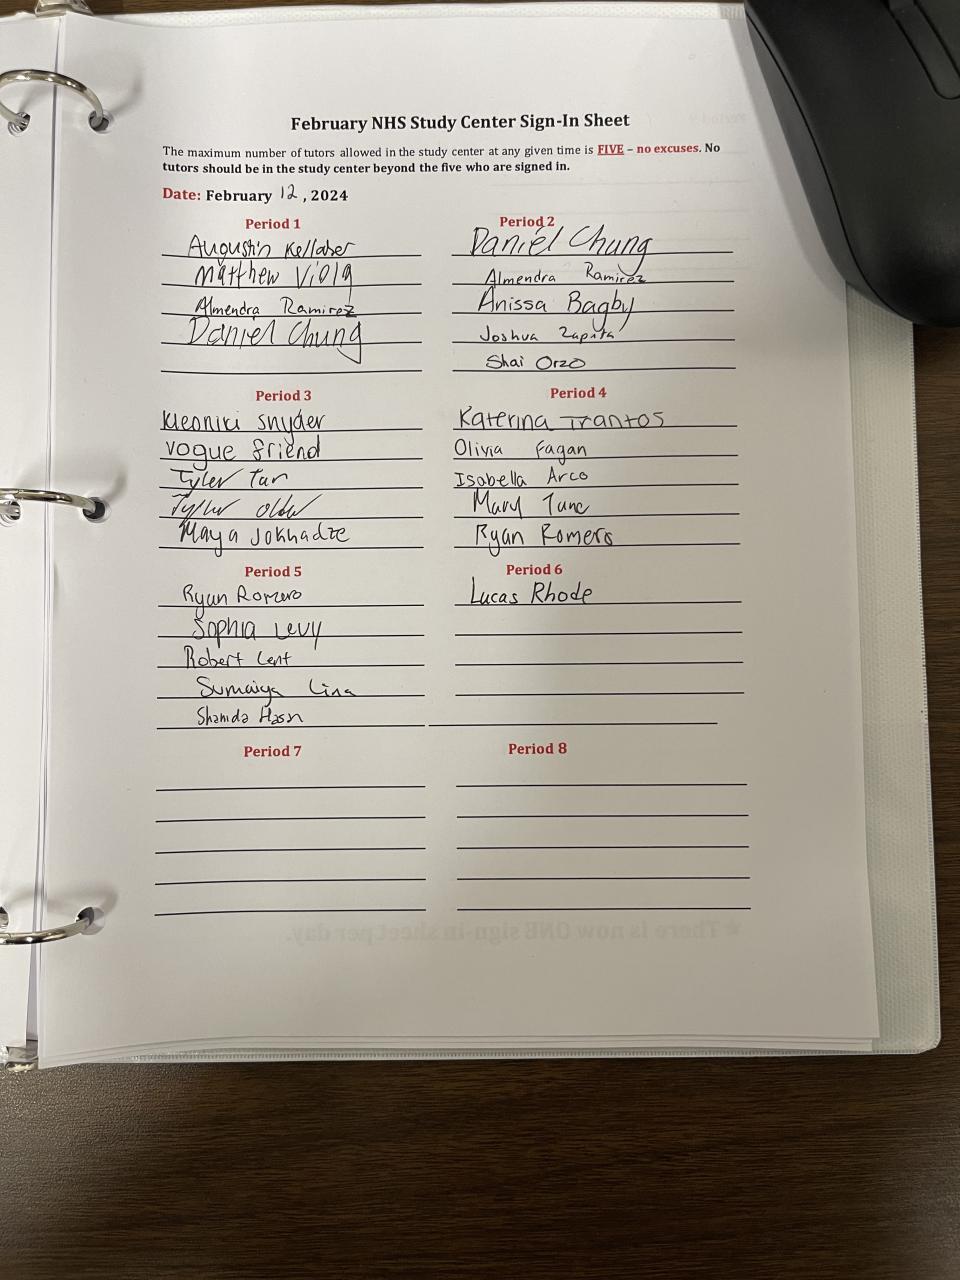 February NHS Study Center Sign-In Sheet
The maximum number of tutors allowed in the study center at any given time is FIVE – no excuses. No
tutors should be in the study center beyond the five who are signed in.
Date: February 12, 2024
Period 1
Augustin Kellaher
Matthew Viola
Almendra Ramirez
Daniel Chung
Period 2
Daniel Chung
Almendra Ramirez
Anissa Bagby
Joshua Zapita
Shai Orzo
Period 3
Kleoniki Snyder
Vogue Friend
Tyler Tan
Maya Jokhadze
Period 4
Katerina Trantos
Olivia Fagan
Isabella Arco
Mary Tanc
Ryan Romero
Period 5
Ryan Romero
Sophia Levy
Robert Lent
Sumaiya Lina
Shamida Hasn
Period 6
Lucas Rhode
Period 7
Period 8
★ There is now ONE sign-in sheet per day.